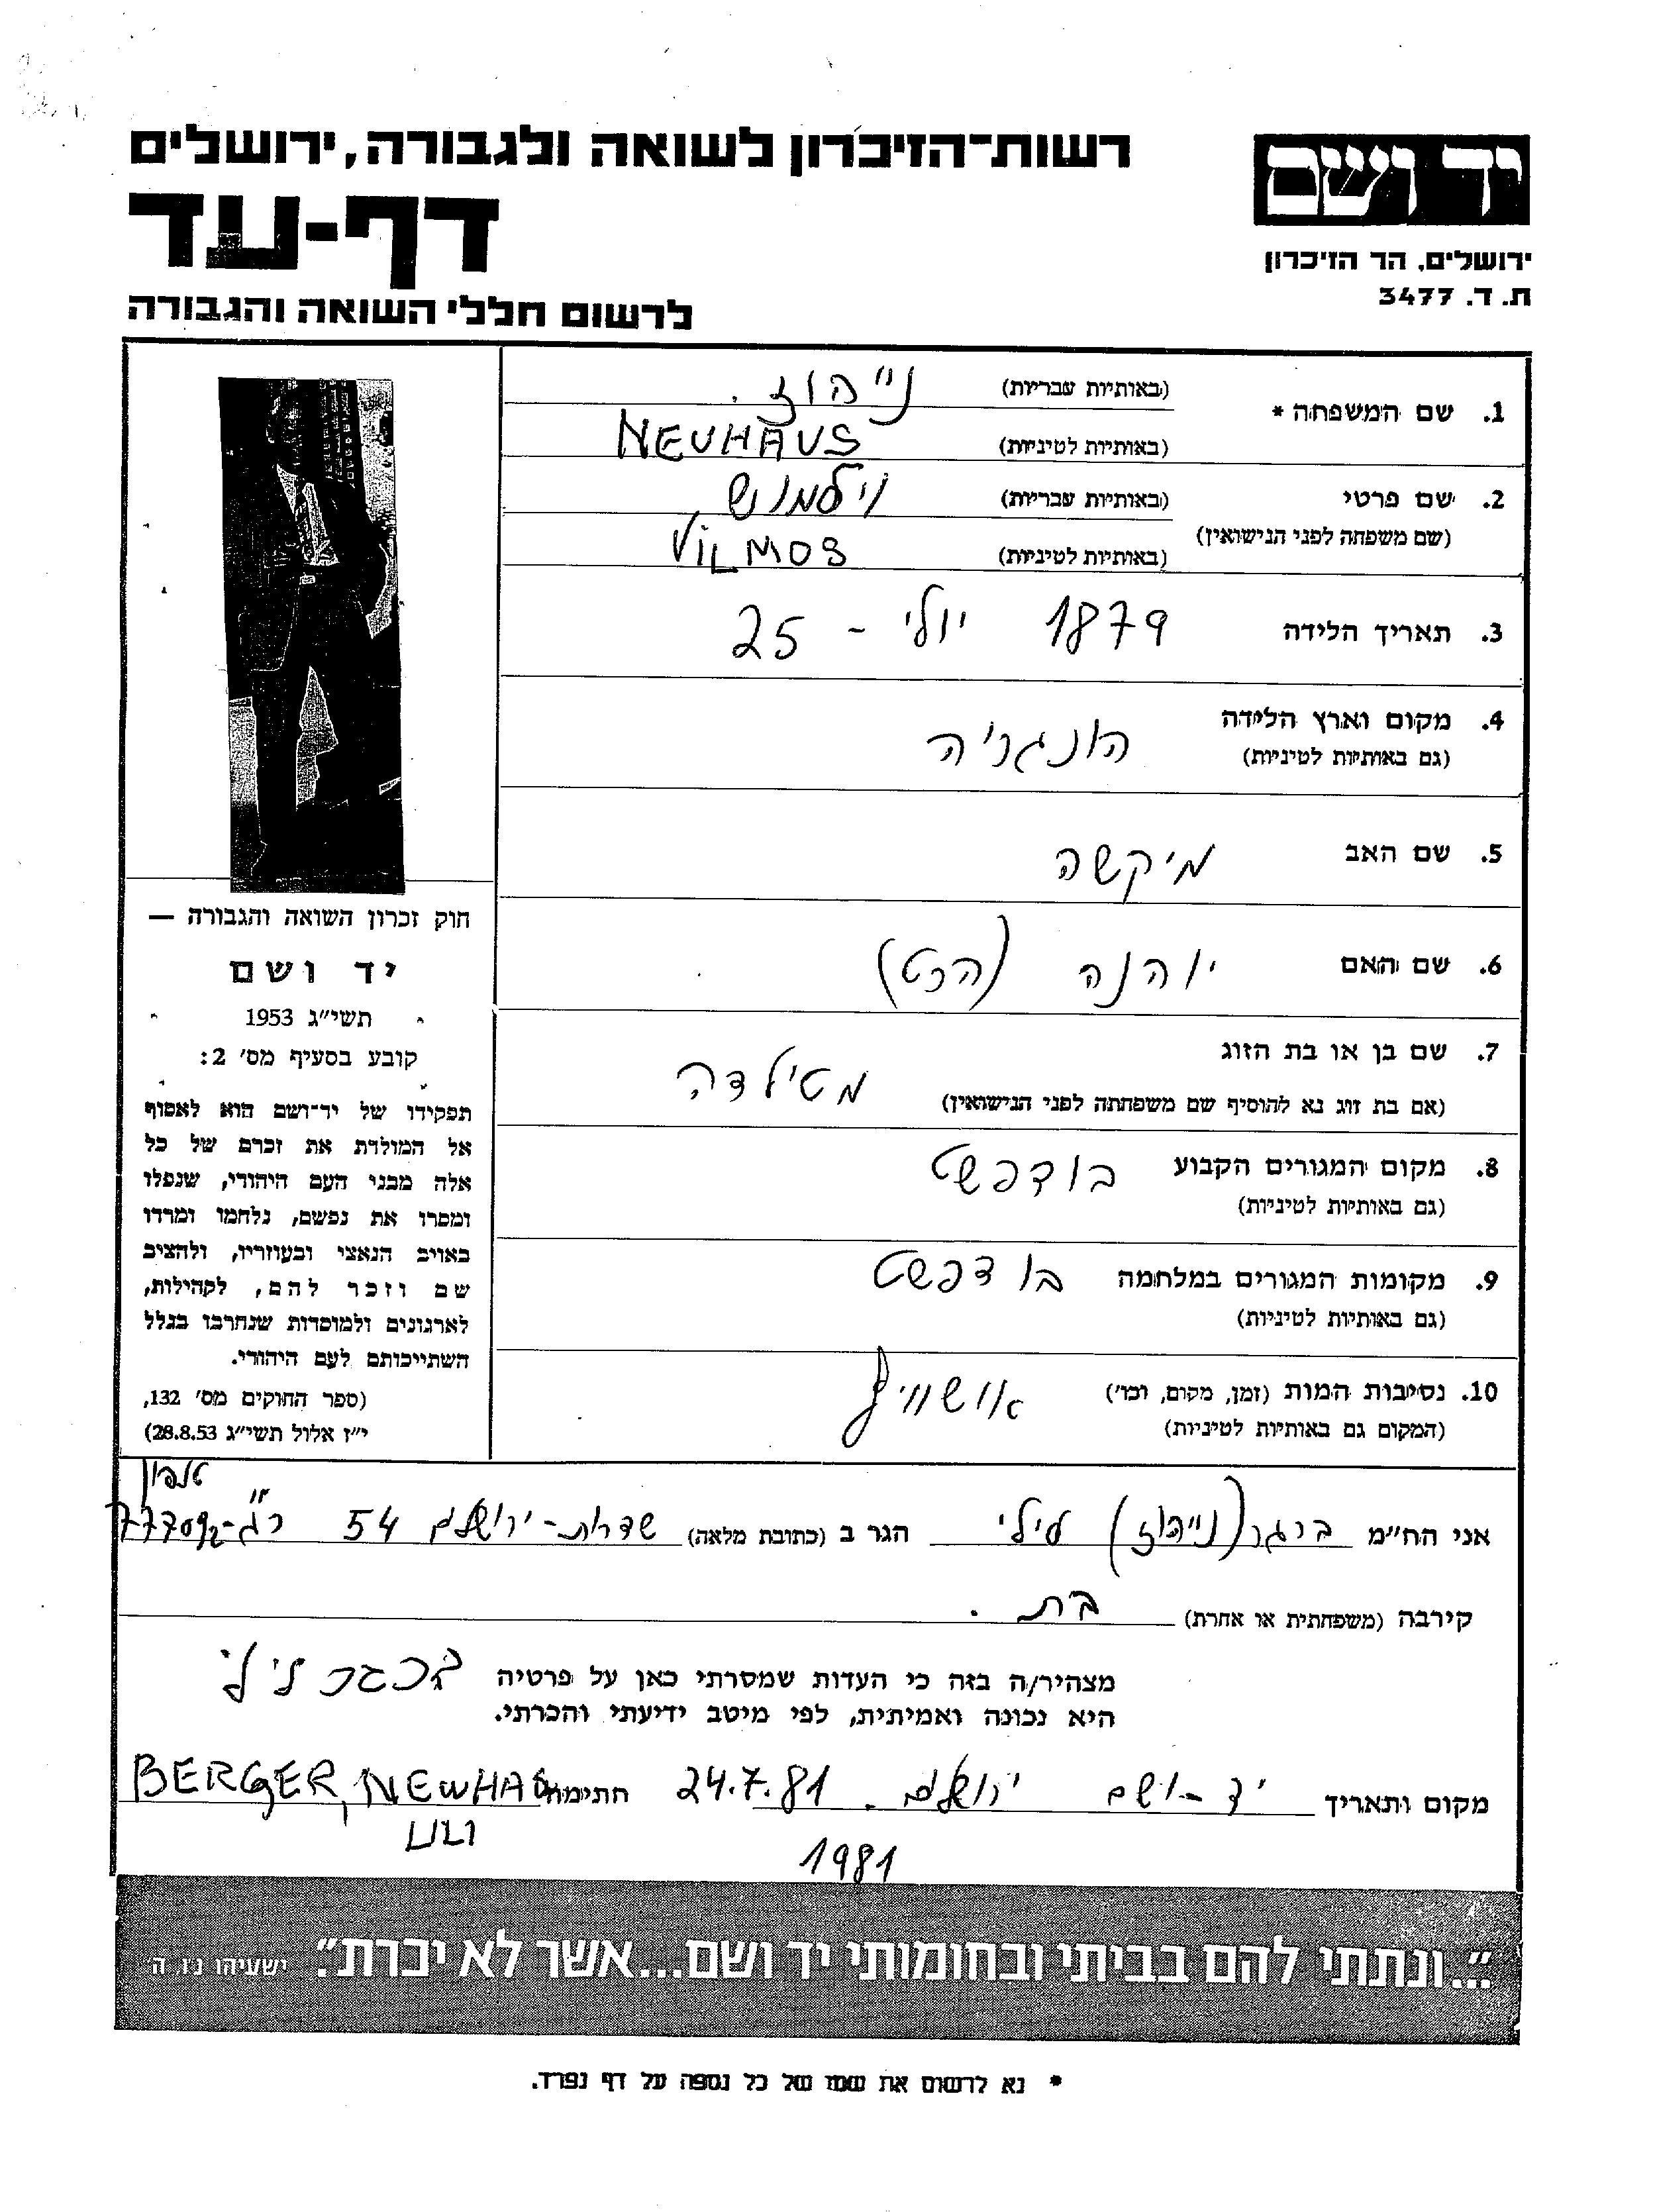 יד ושם
ירושלים, הר הזיכרון
ת. ד. 3477
רשות־הזיכרון לשואה ולגבורה, ירושלים
דף-עד
לרשום חללי השואה והגבורה
1. שם המשפחה * (באותיות עבריות) נייהוז.
(באותיות לטיניות) NEUHAUS
2. שם פרטי (באותיות עבריות) וילמוש
(שם משפחה לפני הנישואין) (באותיות לטיניות) VILMOS
3. תאריך הלידה 1879 יולי - 25
4. מקום וארץ הלידה הונגריה
(גם באותיות לטיניות)
5. שם האב מיקשה
6. שם האם יוהנה
7. שם בן או בת הזוג מטילדה
(אם בת זוג נא להוסיף שם משפחתה לפני הנישואין)
8. מקום המגורים הקבוע בודפשט
(גם באותיות לטיניות)
9. מקומות המגורים במלחמה בודפשט
(גם באותיות לטיניות)
10. נסיבות המות (זמן, מקום, וכו') אושוויץ
(המקום גם באותיות לטיניות)
חוק זכרון השואה והגבורה —
יד ושם
תשי״ג 1953
קובע בסעיף מס׳ 2:
תפקידו של יד־ושם הוא לאסוף
אל המולדת את זכרם של כל
אלה מבני העם היהודי, שנפלו
ומסרו את נפשם, נלחמו ומרדו
באויב הנאצי ובעוזריו, ולהציב
שם וזכר להם, לקהילות,
לארגונים ולמוסדות שנחרבו בגלל
השתייכותם לעם היהודי.
(ספר החוקים מס׳ 132,
י״ז אלול תשי״ג 28.8.53)
טלפון
אני הח״מ ברגר (נייהוז) לילי הגר ב (כתובת מלאה) שדרות-ירושלים 54 ר״ג-777092
קירבה (משפחתית או אחרת) בת.
מצהיר/ה בזה כי העדות שמסרתי כאן על פרטיה ברגר לילי
היא נכונה ואמיתית, לפי מיטב ידיעתי והכרתי.
מקום ותאריך יד-ושם ירושלים. 24.7.81 חתימה BERGER, NEWHAUS
1981 LILI
״...ונתתי להם בביתי ובחומותי יד ושם...אשר לא יכרת״. ישעיהו נ״ו, ה
* נא לרשום את שמו של כל נספה על דף נפרד.